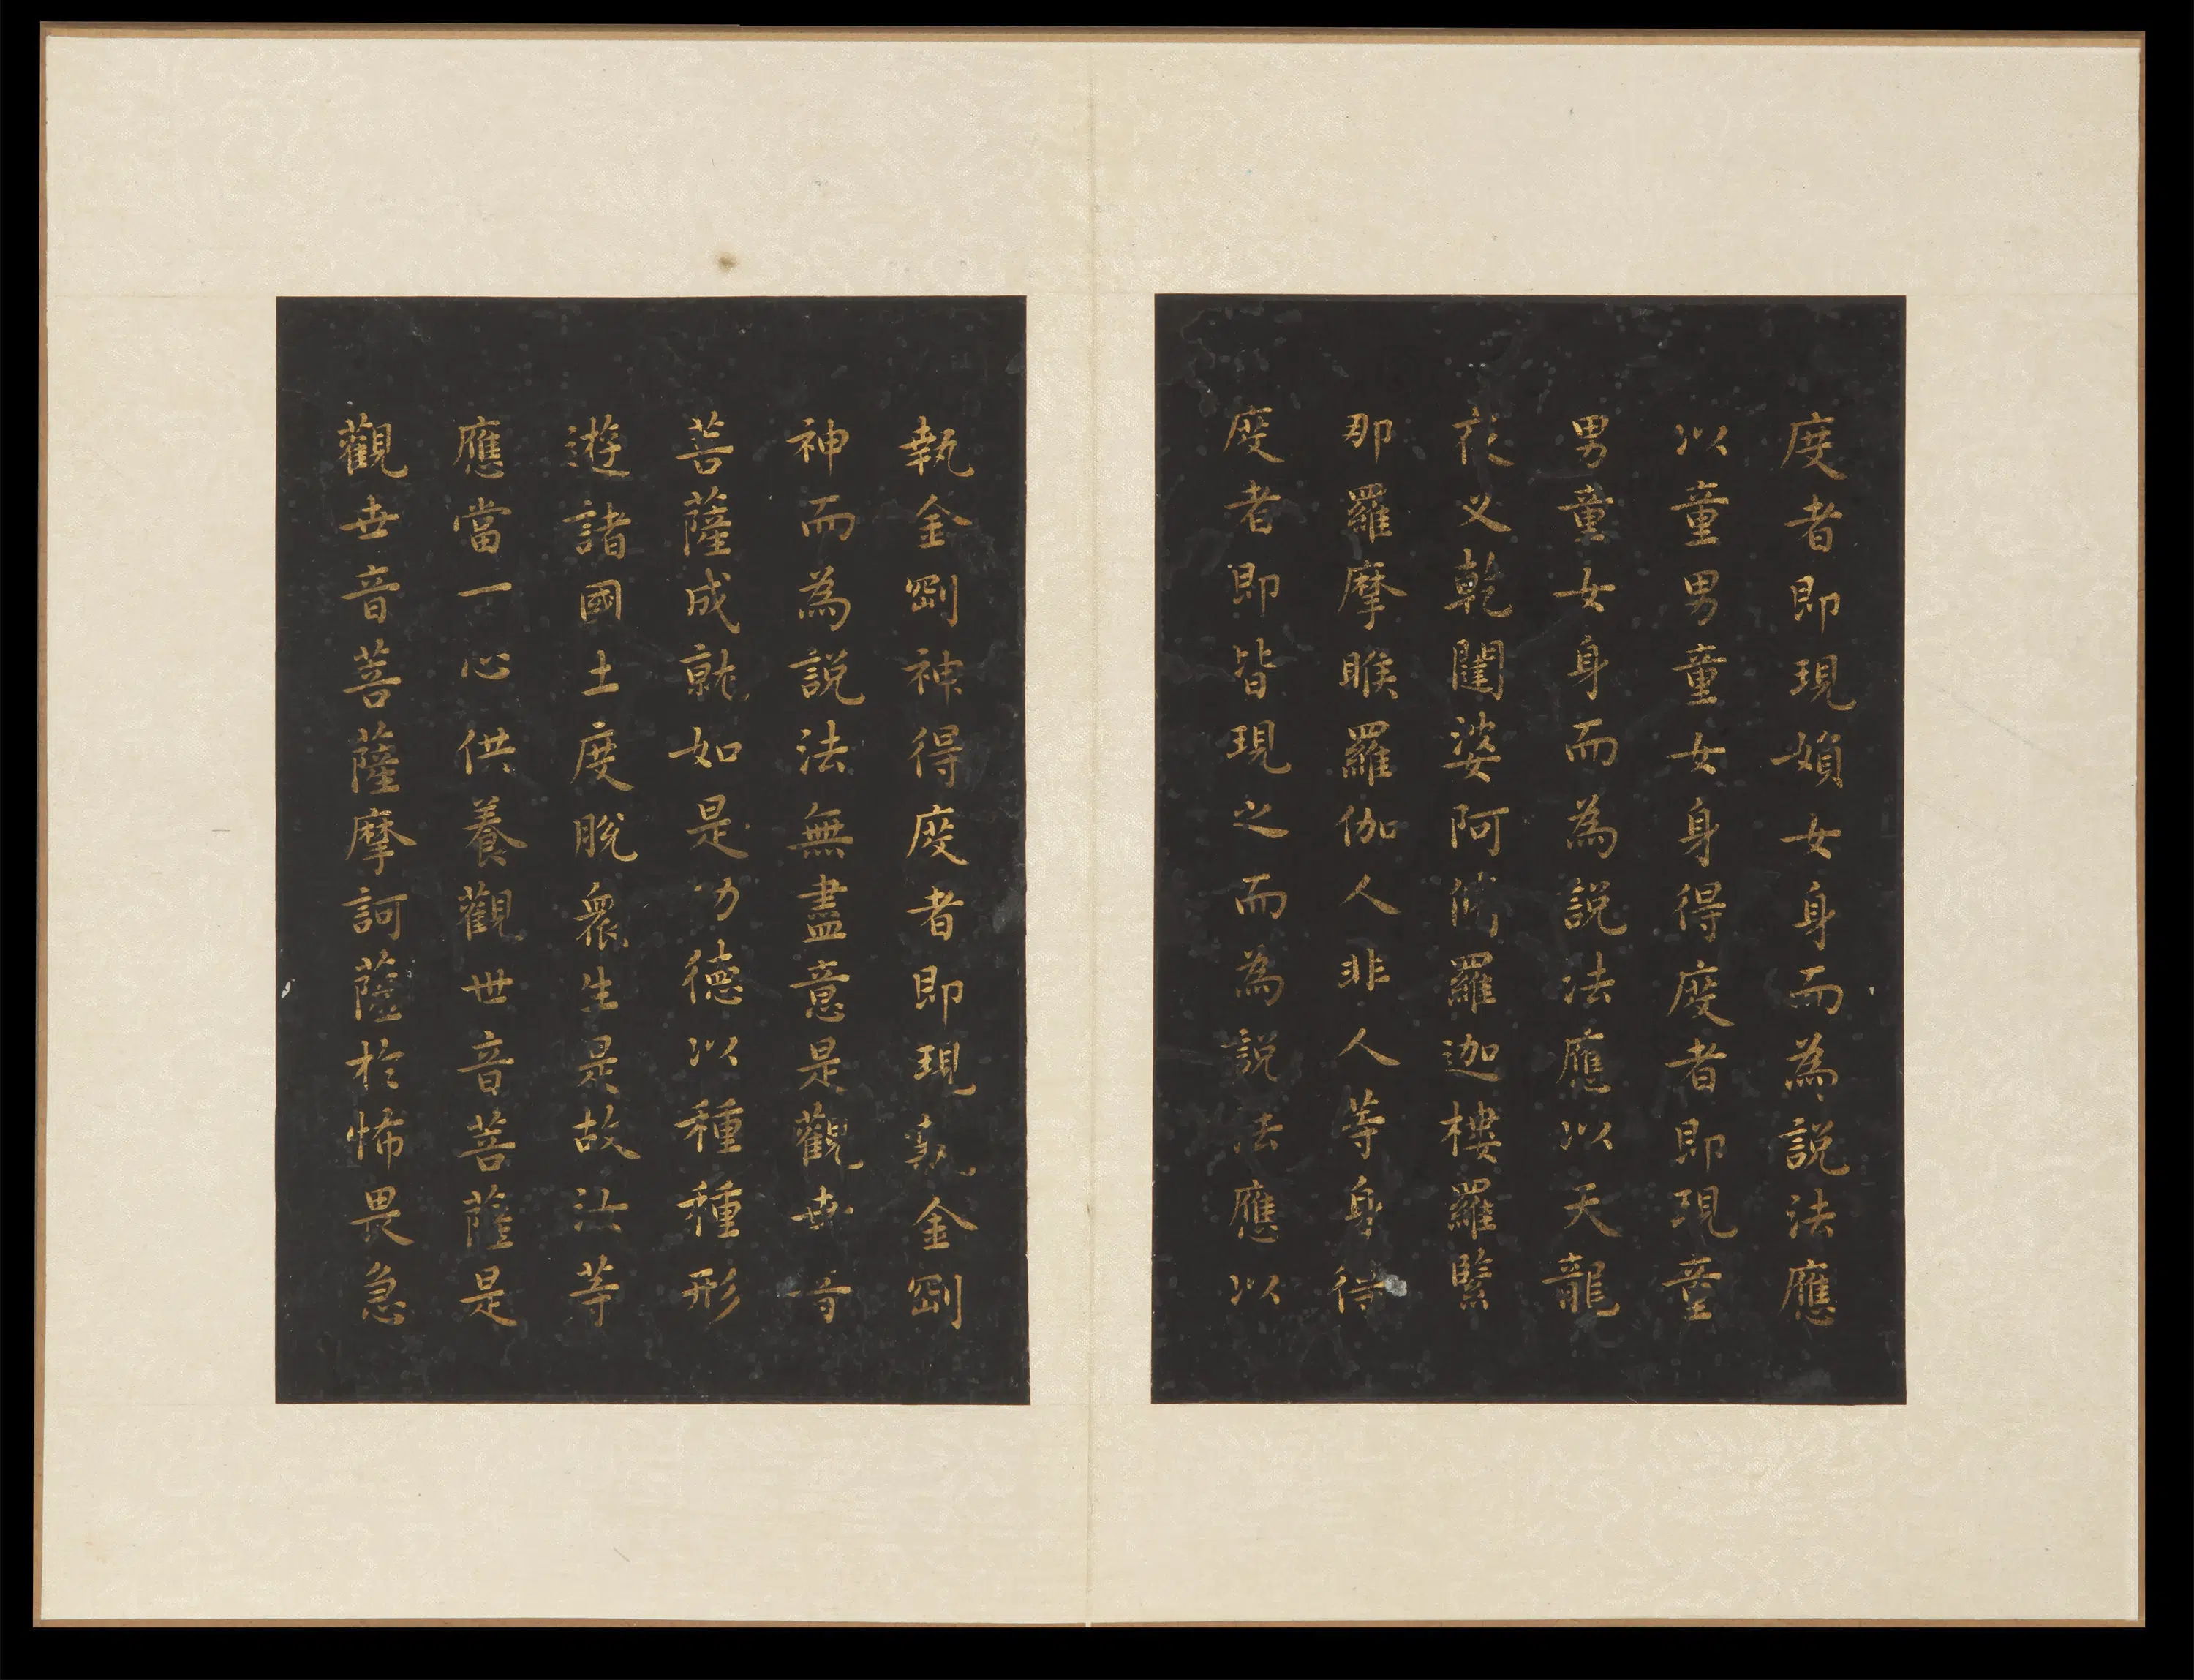 度者即現婦女身而為説法應
以童男童女身得度者即現童
男童女身而為説法應以天龍
夜叉乾闥婆阿脩羅迦樓羅緊
那羅摩睺羅伽人非人等身得
度者即皆現之而為説法應以
執金剛神得度者即現執金剛
神而為説法無盡意是觀世音
菩薩成就如是功德以種種形
遊諸國土度脫衆生是故汝等
應當一心供養觀世音菩薩是
觀世音菩薩摩訶薩於怖畏急